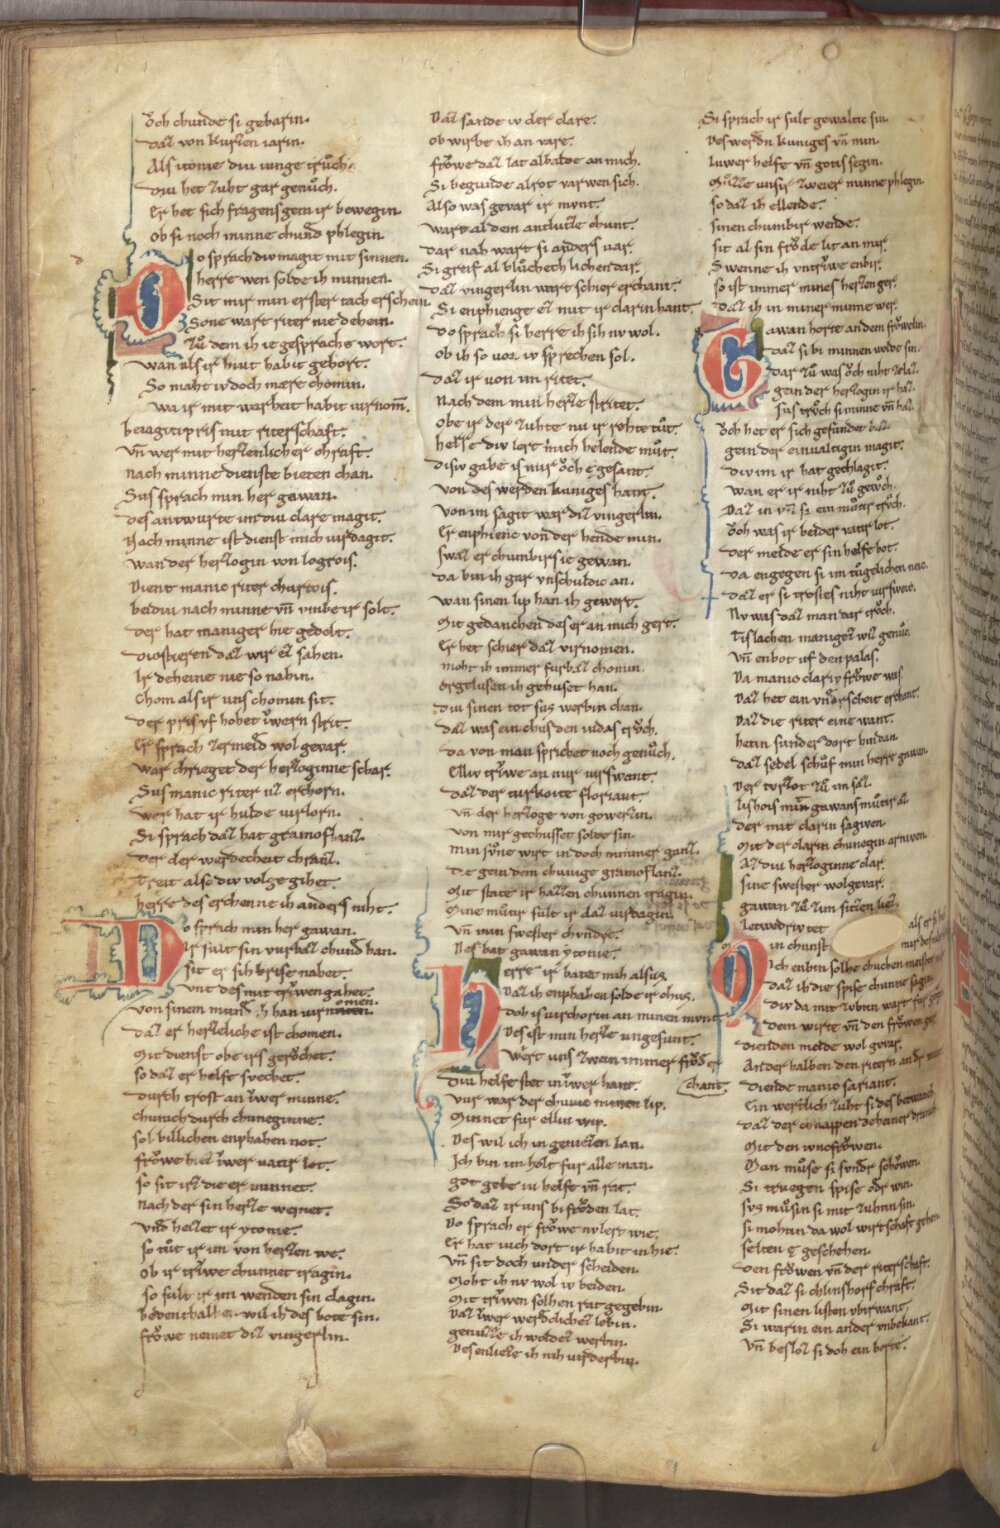 Och chunde si gebarin.
daz von kurzen iarin.
Als itonie diu iunge truch.
diu het zuht gar genuch.
Er het sich fragens gein ir bewegin.
ob si noch minne chund phlegin.
Do sprach diu magit mit sinnen.
herre wen solde ih minnen.
Sit mir min erster tach erschein.
Sone wart riter nie dehein.
zu dem ih ie gesprache wort.
wan als ir hiut habit gehort.
So maht iv doch mære chomin.
wa ir mit warheit habit virnom̄.
beiagitipris mit riterschaft.
vn̄ wer mit herzenlicher chraft.
Nach minne dienste bieten chan.
Sus sprach min her gawan.
des antwurte im diu clare magit.
Nach minne ist dienst mich virdagit.
wan der herzogin von logrois.
Dient manic riter churtois.
beidiu nach minne vn̄ vmbe ir solt.
der hat maniger hie gedolt.
diostieren daz wir ez sahen.
Ir deheine nie so nahin.
Chom als ir uns chomin sit.
der pris vf hohet iwern strit.
Er sprach zermeid wol gevar.
war chrieget der herzoginne schar.
Sus manic riter uz erchorn.
wer hat ir hulde virlorn.
Si sprach daz hat gramoflanz.
der der werdecheit chranz.
Treit also div volge gihet.
herre des erchenne ih anders niht.
Do sprach min her gawan.
Ir sult sin vurbaz chund han.
Sit er sih prise nahet.
vnt des mit triwen gahet.
von sinem mund ih han virnomen.
daz er herzeliche ist chomen.
Mit dienst obe irs gerochet.
so daz er helfe svechet.
durch trost an iwer minne.
chunich durch chuneginne.
sol billichen enphahen not.
frowe hiez iwer vatir lot.
so sit irz die er minnet.
nach der sin herze wernet.
vnd heizet ir ytonie.
so tut ir im von herzen we.
ob ir triwe chunnet tragin.
so sult ir im wenden sin clagin.
bedenthalbe wil ih des bote sin.
frowe nemet diz vingerlin.
Daz sande iv der clare.
ob wirbe ih an vare.
frowe daz lat albalde an mich.
Si begunde alrot varwen sich.
Also was gevar ir mvnt.
wart al dem antluzze chunt.
dar nah wart si anders var.
Si greif al bluchech lichen dar.
daz vingerlin wart schier erchant.
Si enphienge ez mit ir clarin hant.
do sprach si herre ih sih nv wol.
ob ih so vor iv sprechen sol.
daz ir von im ritet.
Nach dem min herze stritet.
obe ir der zuhte nu ir rehte tut.
herre diu lert mich helende mut.
disiv gabe ist mir och e gesant
von des werden kuniges hant.
von im sagit war diz vingerlin.
Er enphienc von der hende min.
swaz er chumbirs ie gewan.
da bin ih gar vnschuldic an.
wan sinen lip han ih gewert.
Mit gedanchen des er an mich gert.
Er het schier daz virnomen.
moht ih immer furbaz chomin.
orgelusen ih gehuset han.
diu sinen tot sus werbin chan.
daz was ein chus den iudas truch.
da von man sprichet noch genuch.
Elliv triwe an mir virswant.
daz der turkoite floriant.
vn̄ der herzoge von gowerzin.
von mir gechusset solde sin.
min sune wirt in doch nimmer ganz.
Die gein dem chunige gramoflanz.
Mit state ir hazzen chunnen tragin.
Mine mutir sult ir daz virdagin.
vn̄ min swester chvndre.
Des bat gawan ytonie.
Herre ir batet mih alsus.
Daz ih enphahen solde ir chus.
doh ist virchorn an minen mvnt.
Des ist min herze ungesunt.
Wert uns zwein immer frod er
chant.
diu helfe stet in iwer hant.
vur war der chunic minen lip.
Minnet fur elliu wip.
Des wil ich in geniezen lan.
Ich bin im holt fur alle man.
got gebe iu helfe vn̄ rat.
So daz ir uns bi froden lat.
Do sprach er frowe nv lert wie.
Er hat iuch dort ir habit in hie.
vn̄ sit doch under scheiden.
Moht ih nv wol iv beiden.
Mit triwen solhen rat gegebin
Daz iwer werdclichez lebin.
genuzze ih woldez werbin.
Desenlieze ih nih virderbin.
Si sprach ir sult gewaltic sin.
des werdn kuniges vn̄ min.
Iuwer helfe vn̄ gotis segin.
Muzze unsir zweier minne phlegin.
so daz ih ellende.
sinen chumbir wende.
sit al sin frode lit an mir.
Swenne ih vntriwe enbir.
so ist immer mines herzen ger.
Daz ih in miner minne wer.
Gawan horte an dem frowelin.
daz si bi minnen wolde sin.
dar zu was och niht zelaz.
gein der herzogin ir haz.
Sus truch si minne vn̄ haz.
Och het er sich gesundet baz.
gein der einvaltigin magit.
diu im ir hat gechlagit.
wan er ir niht zu gewch.
Daz in vn̄ si ein mutir truch.
Och was ir beider vatir lot.
der meide er sin helfe bot.
da engegen si im tugelichen neic.
daz er si trostes niht virsweic.
Nv was daz man dar truch.
Tislachen manigez wiz genuc.
vn̄ enbot uf den palas.
Da manic clariv frowe was
Daz het ein vndrscheit erchant.
Daz die riter eine want.
hetin sunder dort hindan
daz sedel schuf min herre gawan.
Der turkot zu im saz.
lishois min gawans mutir az
der mit clarin sagiven.
Mit der clarin chunegin arniven.
Az diu herzoginne clar.
sine swester wolgevar.
gawan zu zim sitzen liez.
Ich enbin solhe chuchen meister
daz ih die spise chunne sagin.
diu da mit zuhtin wart fur getragen
dem wirte vn̄ den frowen gar.
dienden meide wol gevar.
Ander halben den ritern an dr want
diende manic sariant.
Ein werlich zuht si des betwanch
daz der chnappen deheiner dranch
Mit den iuncfrowen.
Man muse si sundr schowen.
Si truegen spise odr win.
sus musin si mit zuhtin sin.
si mohtin da wol wirtschaft gehen.
selten e geschehen.
den frowen vn̄ der riterschaft.
Sit daz si chlinshors chraft.
Mit sinen listen vbirwant.
Si warin ein ander vnbekant.
Vn̄ besloz si doh ein borte.